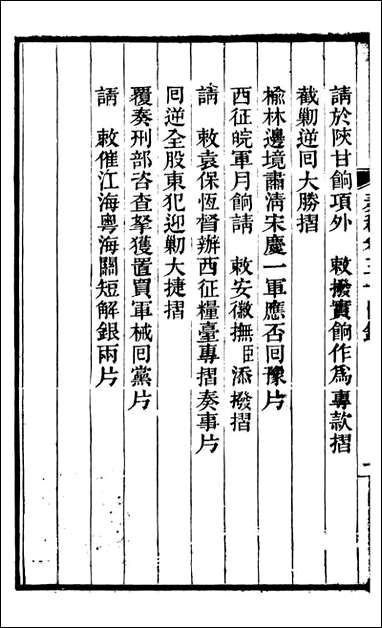 請於陝甘餉項外　敕撥實餉作爲專款摺
截勦逆回大勝摺
榆林邊境肅清宋慶一軍應否回豫片
西征皖軍月餉請　敕安徽撫臣添撥摺
請　敕袁保恆督辦西征糧臺專摺奏事片
回逆全股東犯迎勦大捷摺
覆奏刑部咨查拏獲置買軍械回黨片
請　敕催江海粵海關短解銀兩片